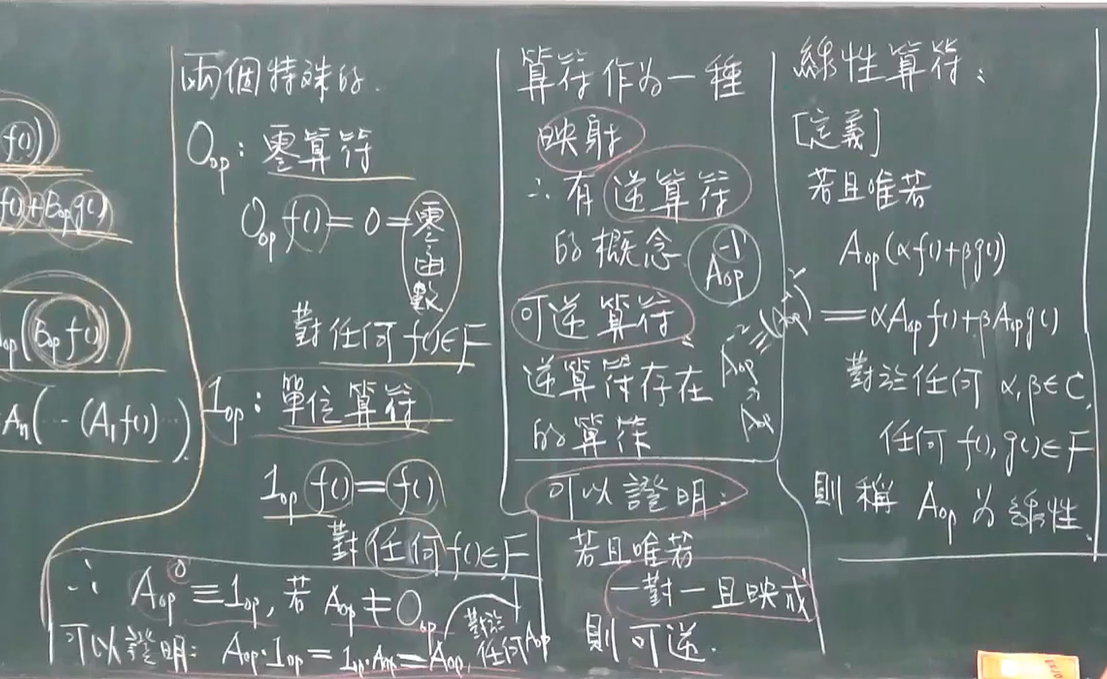 f()
f()+Bopg()
op(Bopf())
An(…(A1f())…)
兩個特殊的.
Oop：零算符
Oop f()=0=零函數
對任何 f()∈F
1op：單位算符
1op f()=f()
對任何 f()∈F
∴ Aop⁰≡1op, 若 Aop≠Oop
可以證明: Aop·1op=1op·Aop=Aop, 對於任何Aop
算符作為一種
映射
∴有逆算符
的概念 Aop⁻¹
可逆算符:
逆算符存在
的算符
可以證明:
若且唯若
一對一且映成
則可逆.
線性算符：
[定義]
若且唯若
Aop(αf()+βg())
=αAopf()+βAopg()
對於任何 α,β∈C,
任何 f(),g()∈F
則稱 Aop 為線性